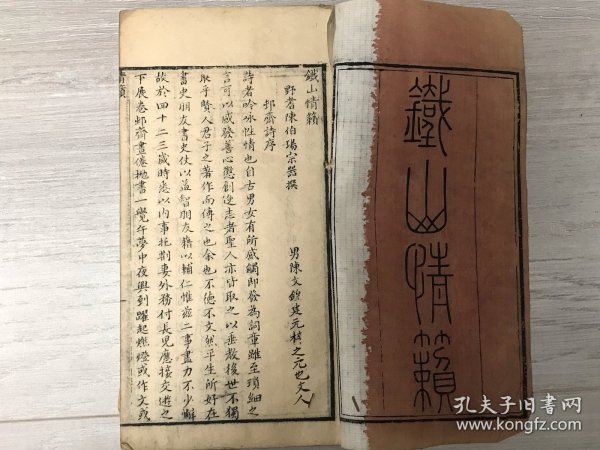 鐵山情籟
鐵山情籟
野耆陳伯瑒宗器撰
男陳文鐘廷元梓之元也文人
邨齋詩序
詩者吟咏性情也自古男女有所感觸即發為詞章雖至瑣細之
言可以感發善心懲創逸志者聖人亦皆取之以垂教後世不獨
取乎賢人君子之著作而傳之也余也不德不文然平生所好在
書史朋友書史伏以益智朋友籍以輔仁惟茲二事盡力不少懈
故於四十二三歲時悉以内事托荆妻外務付長兒應接交遊之
下展卷邨齋晝倦抛書一覺午夢中夜興到躍起燃燈或作文或
情籟
孔夫子旧書网
www.kongfz.com